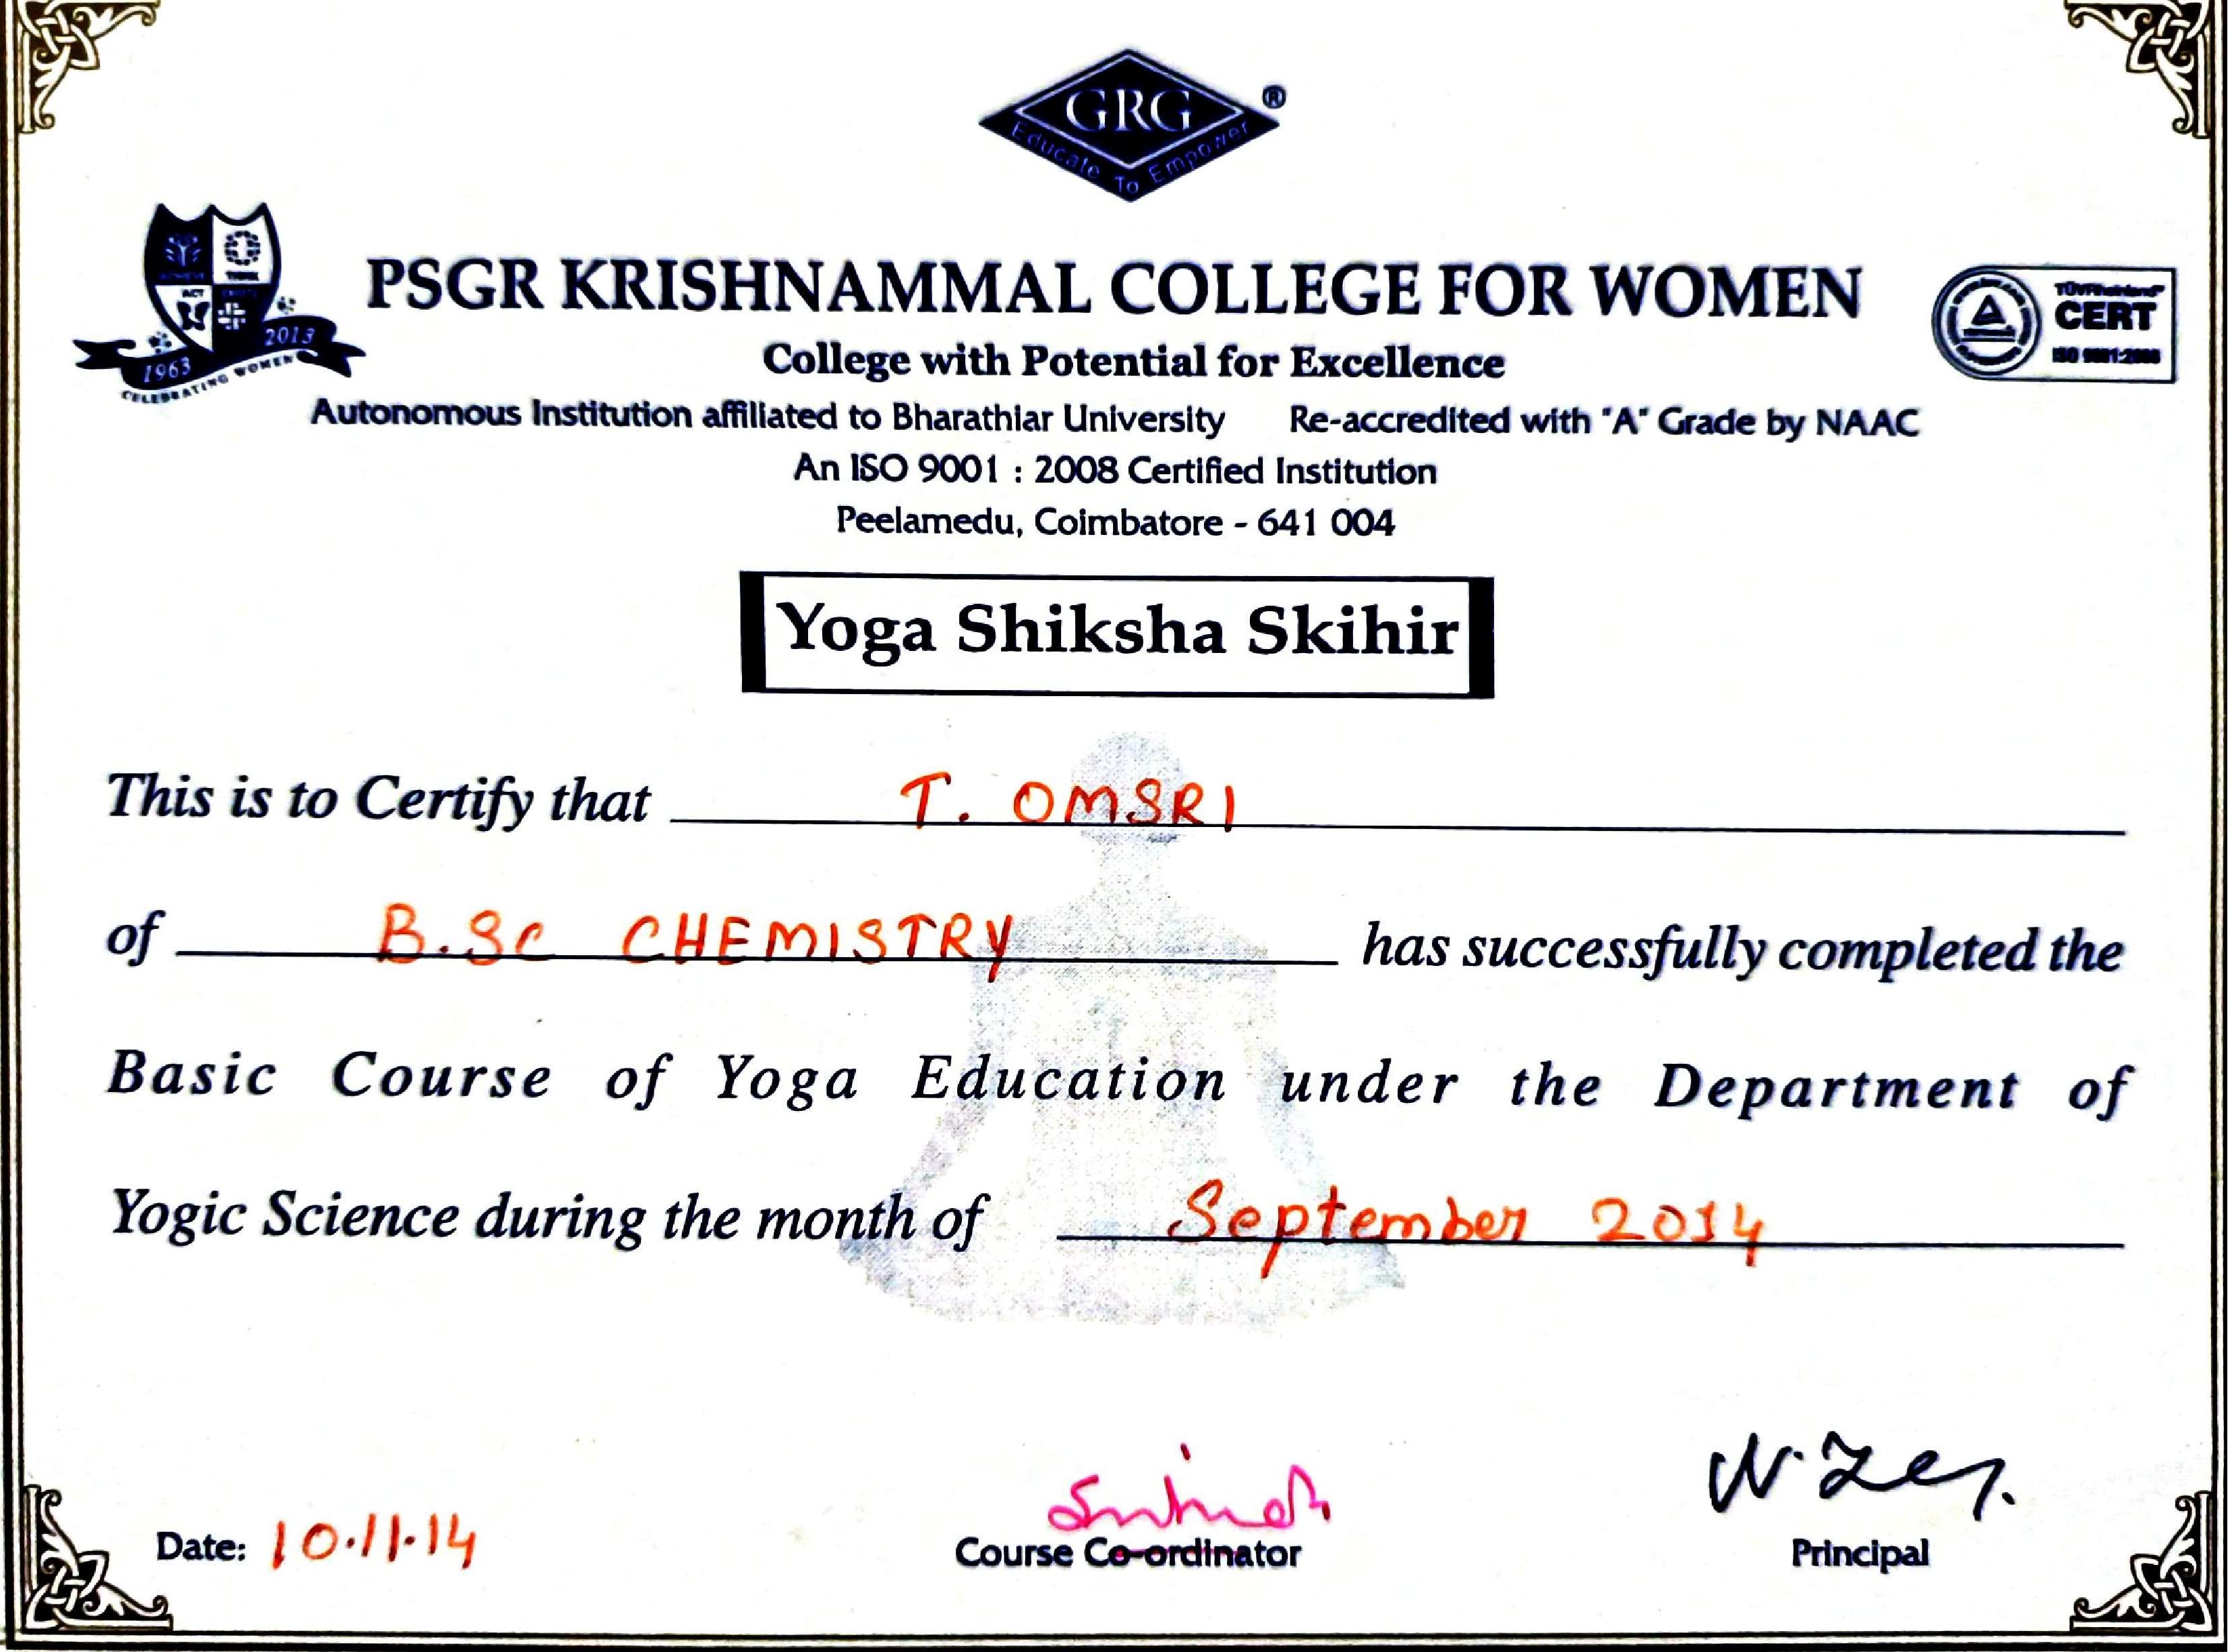 GRG ®
Educate To Empower
ACT
1963 2013
CELEBRATING WOMEN
PSGR KRISHNAMMAL COLLEGE FOR WOMEN
TÜVRheinland
CERT
ISO 9001:2008
College with Potential for Excellence
Autonomous Institution affiliated to Bharathiar University Re-accredited with "A" Grade by NAAC
An ISO 9001 : 2008 Certified Institution
Peelamedu, Coimbatore - 641 004
Yoga Shiksha Skihir
This is to Certify that T. OMSRI
of B.Sc CHEMISTRY has successfully completed the
Basic Course of Yoga Education under the Department of
Yogic Science during the month of September 2014
Date: 10.11.14
Course Co-ordinator
Principal